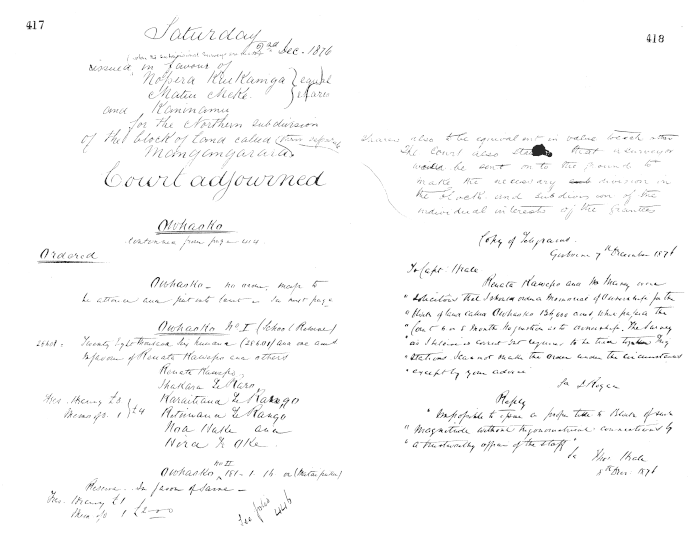 417
Saturday
2nd Dec. 1876
issued in favour of
Nopera Kuikanga } equal
Matiu Meke } shares
and Kaninamu
for the Northern subdivision
of the block of land called
Mangamgarara
Court adjourned
Owhaoko
continued from page
Ordered
Owhaoko - no name; map to
be altered and put into Court - See next page
Owhaoko No II (School Reserve)
28601 - Twenty eight thousand six hundred (28601) and one and
in favour of Renata Kawepo and others
Renata Kawepo
Ihakara Te Raro
Karaitiana Te Rango
Retimana Te Rango
Noa Huke and
Hira Te Oke
Fees. Hearing £3
Memo of O. 1 } £4
Owhaoko No II 181 - 1. 16 or
Reserve - In favor of same -
Fees Hearing £1
Mem of O 1 £2.0.0
See folio
446
418
shares also to be equivalent in value to each other
The Court also that a surveyor
would be sent on to the ground to
make the necessary division in
the block and subdivision of the
individual interests of the grantees
Copy of Telegrams.
Gisborne 7th December 1876
To Capt. Heale
Renata Kawepo and Mr Maney were
" solicitous that I should order a Memorial of Ownership for the
" Block of land called Owhaoko
" 6 or 8 Months Inquisition as to ownership. The Survey
" as I believe is correct but requires to be tied to
" stations. I cannot make the order under the circumstances
" except by your advice
Reply
" Impossible to open a proper title to Block of such
" magnitude without trigonometrical connections by
" a trustworthy officer of the staff "
Theo Heale
8th Dec. 1876